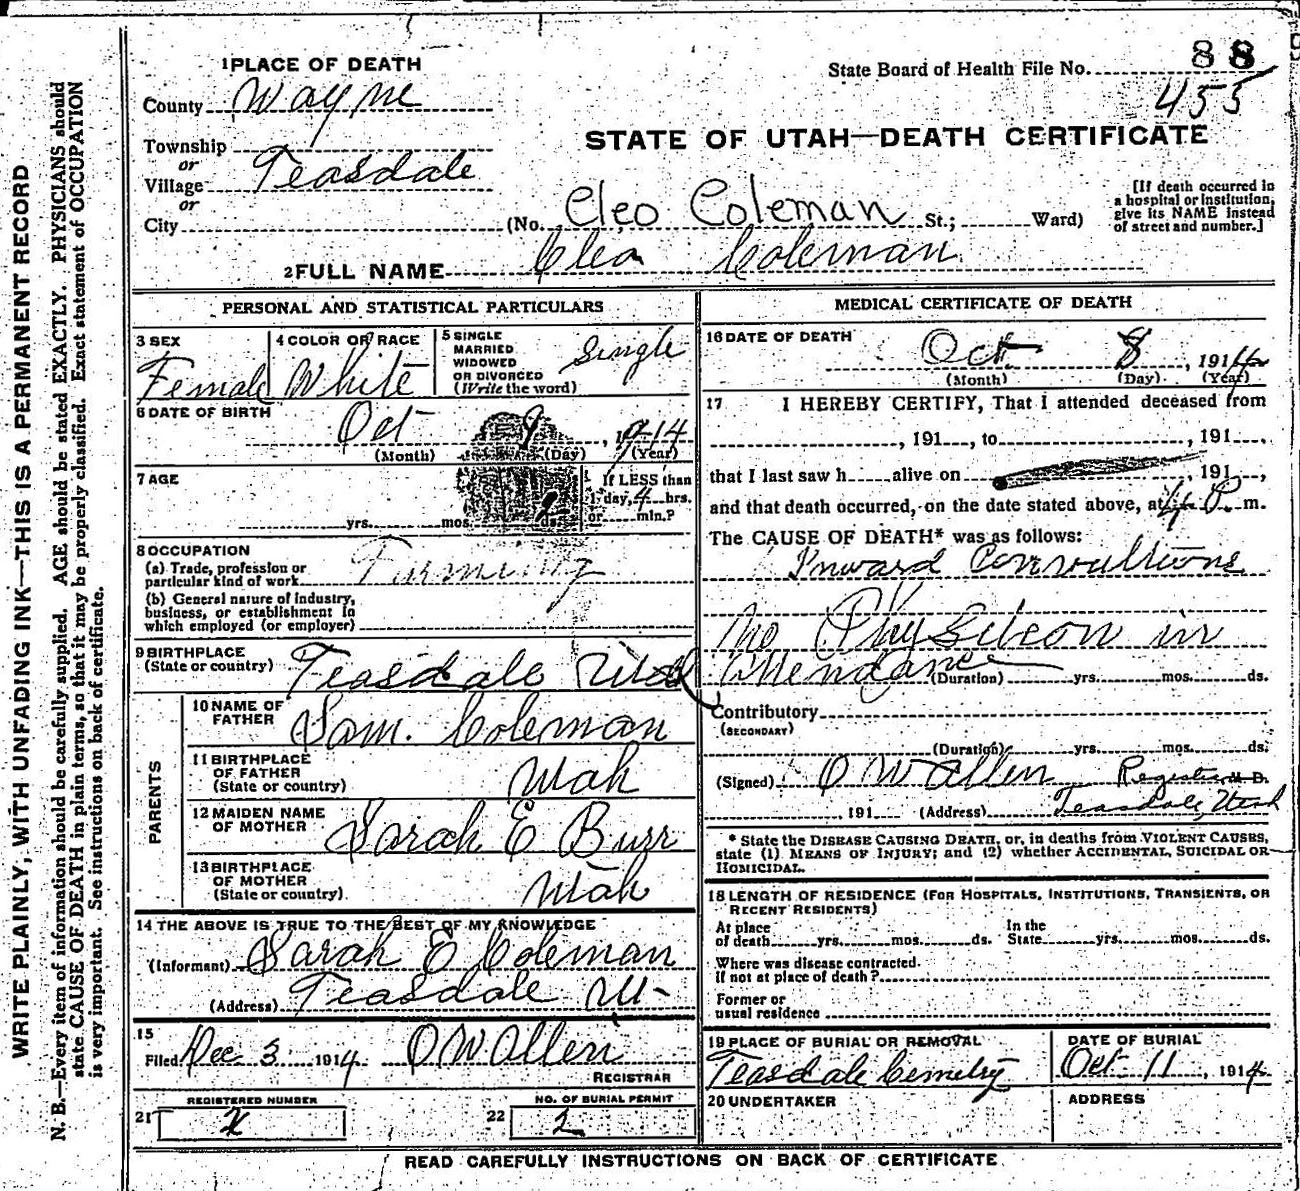 WRITE PLAINLY, WITH UNFADING INK—THIS IS A PERMANENT RECORD
N. B.—Every item of information should be carefully supplied. AGE should be stated EXACTLY. PHYSICIANS should
state CAUSE OF DEATH in plain terms, so that it may be properly classified. Exact statement of OCCUPATION
is very important. See instructions on back of certificate.
1 PLACE OF DEATH
State Board of Health File No. 88
455
County Wayne
STATE OF UTAH—DEATH CERTIFICATE
Township
or
Village Teasdale
or
City (No. Cleo Coleman St.; Ward)
[If death occurred in
a hospital or institution,
give its NAME instead
of street and number.]
2 FULL NAME Cleo Coleman
PERSONAL AND STATISTICAL PARTICULARS
3 SEX
Female
4 COLOR OR RACE
White
5 SINGLE
MARRIED
WIDOWED
OR DIVORCED
(Write the word)
Single
6 DATE OF BIRTH
Oct 8, 1914
(Month) (Day) (Year)
7 AGE
yrs. mos. ds.
If LESS than
1 day, 4 hrs.
or min.?
8 OCCUPATION
(a) Trade, profession or
particular kind of work Farming
(b) General nature of industry,
business, or establishment in
which employed (or employer)
9 BIRTHPLACE
(State or country) Teasdale Utah
PARENTS
10 NAME OF
FATHER Sam. Coleman
11 BIRTHPLACE
OF FATHER
(State or country) Utah
12 MAIDEN NAME
OF MOTHER Sarah E Burr
13 BIRTHPLACE
OF MOTHER
(State or country) Utah
14 THE ABOVE IS TRUE TO THE BEST OF MY KNOWLEDGE
(Informant) Sarah E Coleman
(Address) Teasdale Ut-
15
Filed Dec 3 1914 O W Allen
REGISTRAR
REGISTERED NUMBER
21
NO. OF BURIAL PERMIT
22 2
MEDICAL CERTIFICATE OF DEATH
16 DATE OF DEATH
Oct 8, 1914
(Month) (Day) (Year)
17 I HEREBY CERTIFY, That I attended deceased from
, 191 , to , 191 ,
that I last saw h alive on , 191 ,
and that death occurred, on the date stated above, at 4 P. m.
The CAUSE OF DEATH* was as follows:
Inward Convultions
No Physition in
attendance (Duration) yrs. mos. ds.
Contributory
(SECONDARY)
(Duration) yrs. mos. ds.
(Signed) O W Allen Registrar M. D.
, 191 (Address) Teasdale, Utah
* State the DISEASE CAUSING DEATH, or, in deaths from VIOLENT CAUSES,
state (1) MEANS OF INJURY; and (2) whether ACCIDENTAL, SUICIDAL OR
HOMICIDAL.
18 LENGTH OF RESIDENCE (FOR HOSPITALS, INSTITUTIONS, TRANSIENTS, OR
RECENT RESIDENTS)
At place
of death yrs. mos. ds.
In the
State yrs. mos. ds.
Where was disease contracted.
if not at place of death?
Former or
usual residence
19 PLACE OF BURIAL OR REMOVAL
Teasdale Cemetry
DATE OF BURIAL
Oct 11, 1914
20 UNDERTAKER
ADDRESS
READ CAREFULLY INSTRUCTIONS ON BACK OF CERTIFICATE